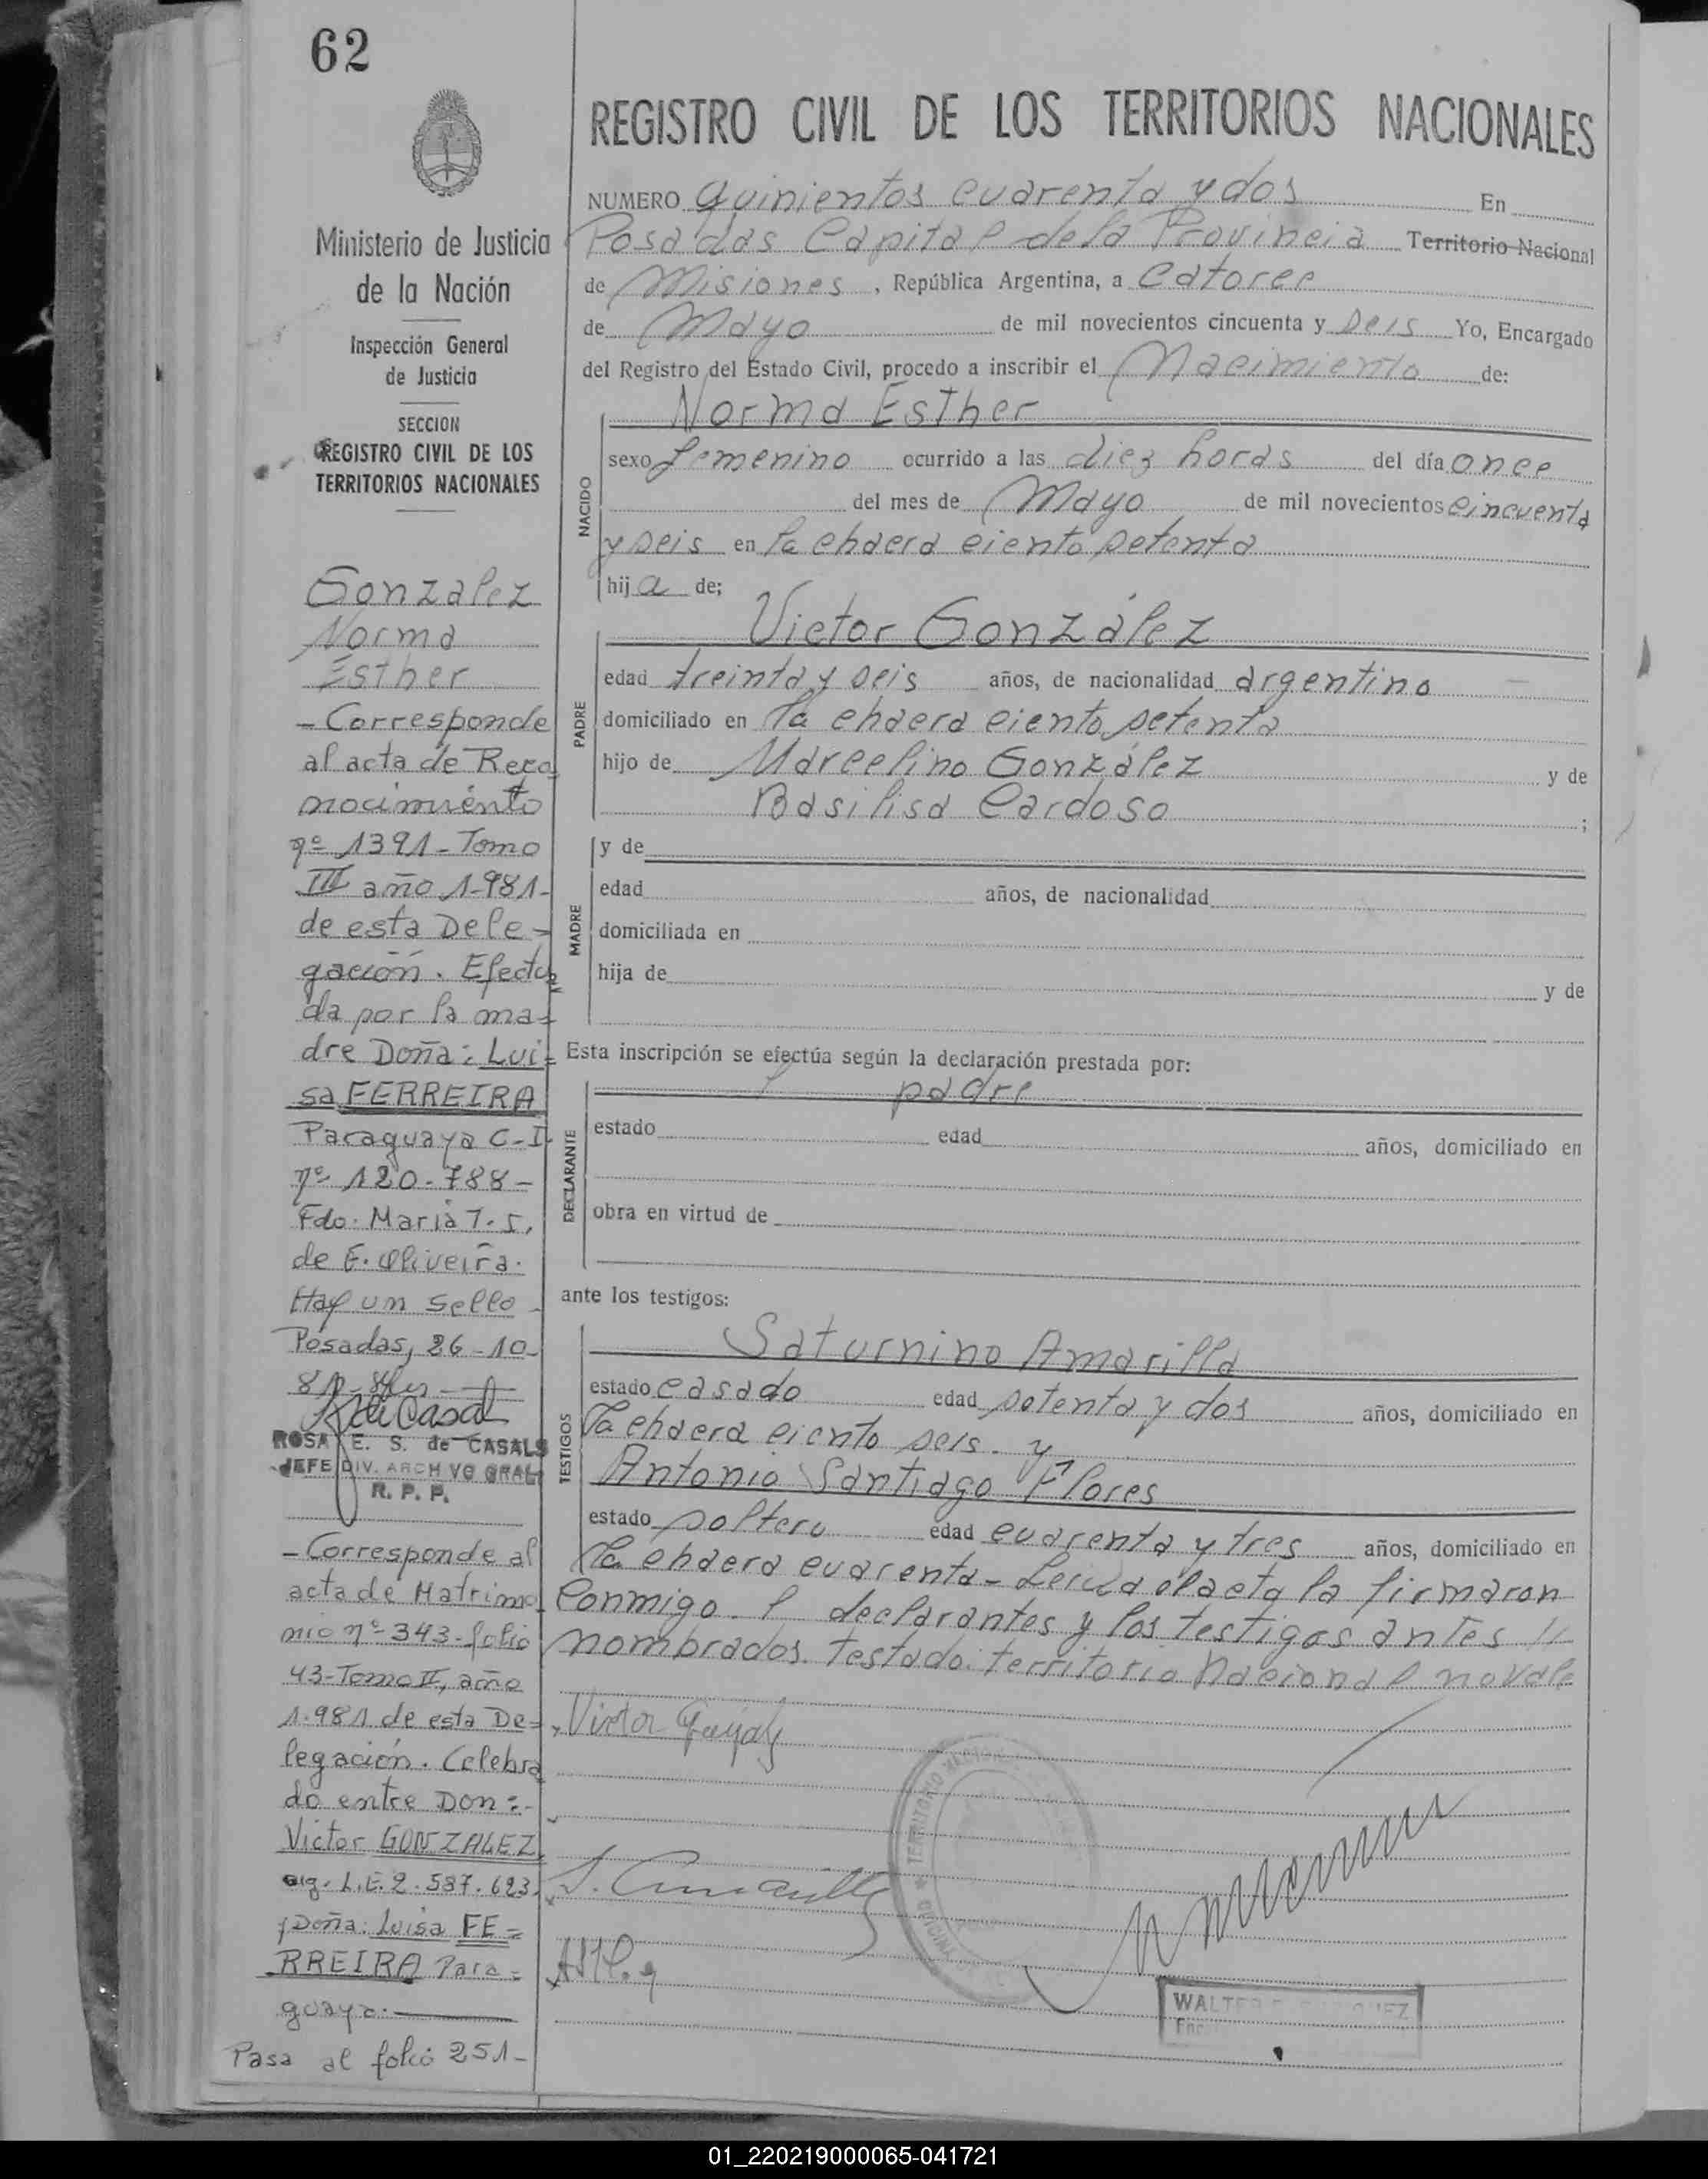 62
REGISTRO CIVIL DE LOS TERRITORIOS NACIONALES
Ministerio de Justicia
de la Nación
Inspección General
de Justicia
SECCION
REGISTRO CIVIL DE LOS
TERRITORIOS NACIONALES
Gonzalez
Norma
Esther
- Corresponde
al acta de Reco
nocimiento
nº 1391 - Tomo
III año 1.981-
de esta Dele-
gación. Efectua
da por la ma-
dre Doña: Lui=
sa FERREIRA
Paraguaya C-I.
nº 120.788-
Fdo. Maria T. S.
de E. Oliveira.
Hay un Sello -
Posadas, 26-10-
81-
ROSA E. S. de CASALS
JEFE DIV. ARCHIVO GRAL
R. P. P.
- Corresponde al
acta de Matrimo
nio nº 343-folio
43-Tomo II, año
1.981 de esta De=
legación. Celebra
do entre Don:-
Victor GONZALEZ,
arg. L.E. 2.587.623,
y Doña: Luisa FE=
RREIRA Para=
guaya.
Pasa al folio 251-
NUMERO Quinientos cuarenta y dos En
Posadas Capital de la Provincia Territorio Nacional
de Misiones, República Argentina, a Catorce
de Mayo de mil novecientos cincuenta y seis Yo, Encargado
del Registro del Estado Civil, procedo a inscribir el Nacimiento de:
NACIDO
Norma Esther
sexo femenino ocurrido a las diez horas del día once
del mes de Mayo de mil novecientos cincuenta
y seis en la chacra ciento setenta
hija de;
PADRE
Victor González
edad treinta y seis años, de nacionalidad argentino
domiciliado en la chacra ciento setenta
hijo de Marcelino González y de
Basilisa Cardoso ;
MADRE
y de
edad años, de nacionalidad
domiciliada en
hija de y de
Esta inscripción se efectúa según la declaración prestada por:
DECLARANTE
l padre
estado edad años, domiciliado en
obra en virtud de
ante los testigos:
TESTIGOS
Saturnino Amarilla
estado casado edad setenta y dos años, domiciliado en
la chacra ciento seis. y
Antonio Santiago Flores
estado soltero edad cuarenta y tres años, domiciliado en
la chacra cuarenta - Leida el acta la firmaron
conmigo. l declarantes y los testigos antes //
nombrados. testado: territorio Nacional no vale
Victor
S. Amarilla
TERRITORIO
WALTER
01_220219000065-041721